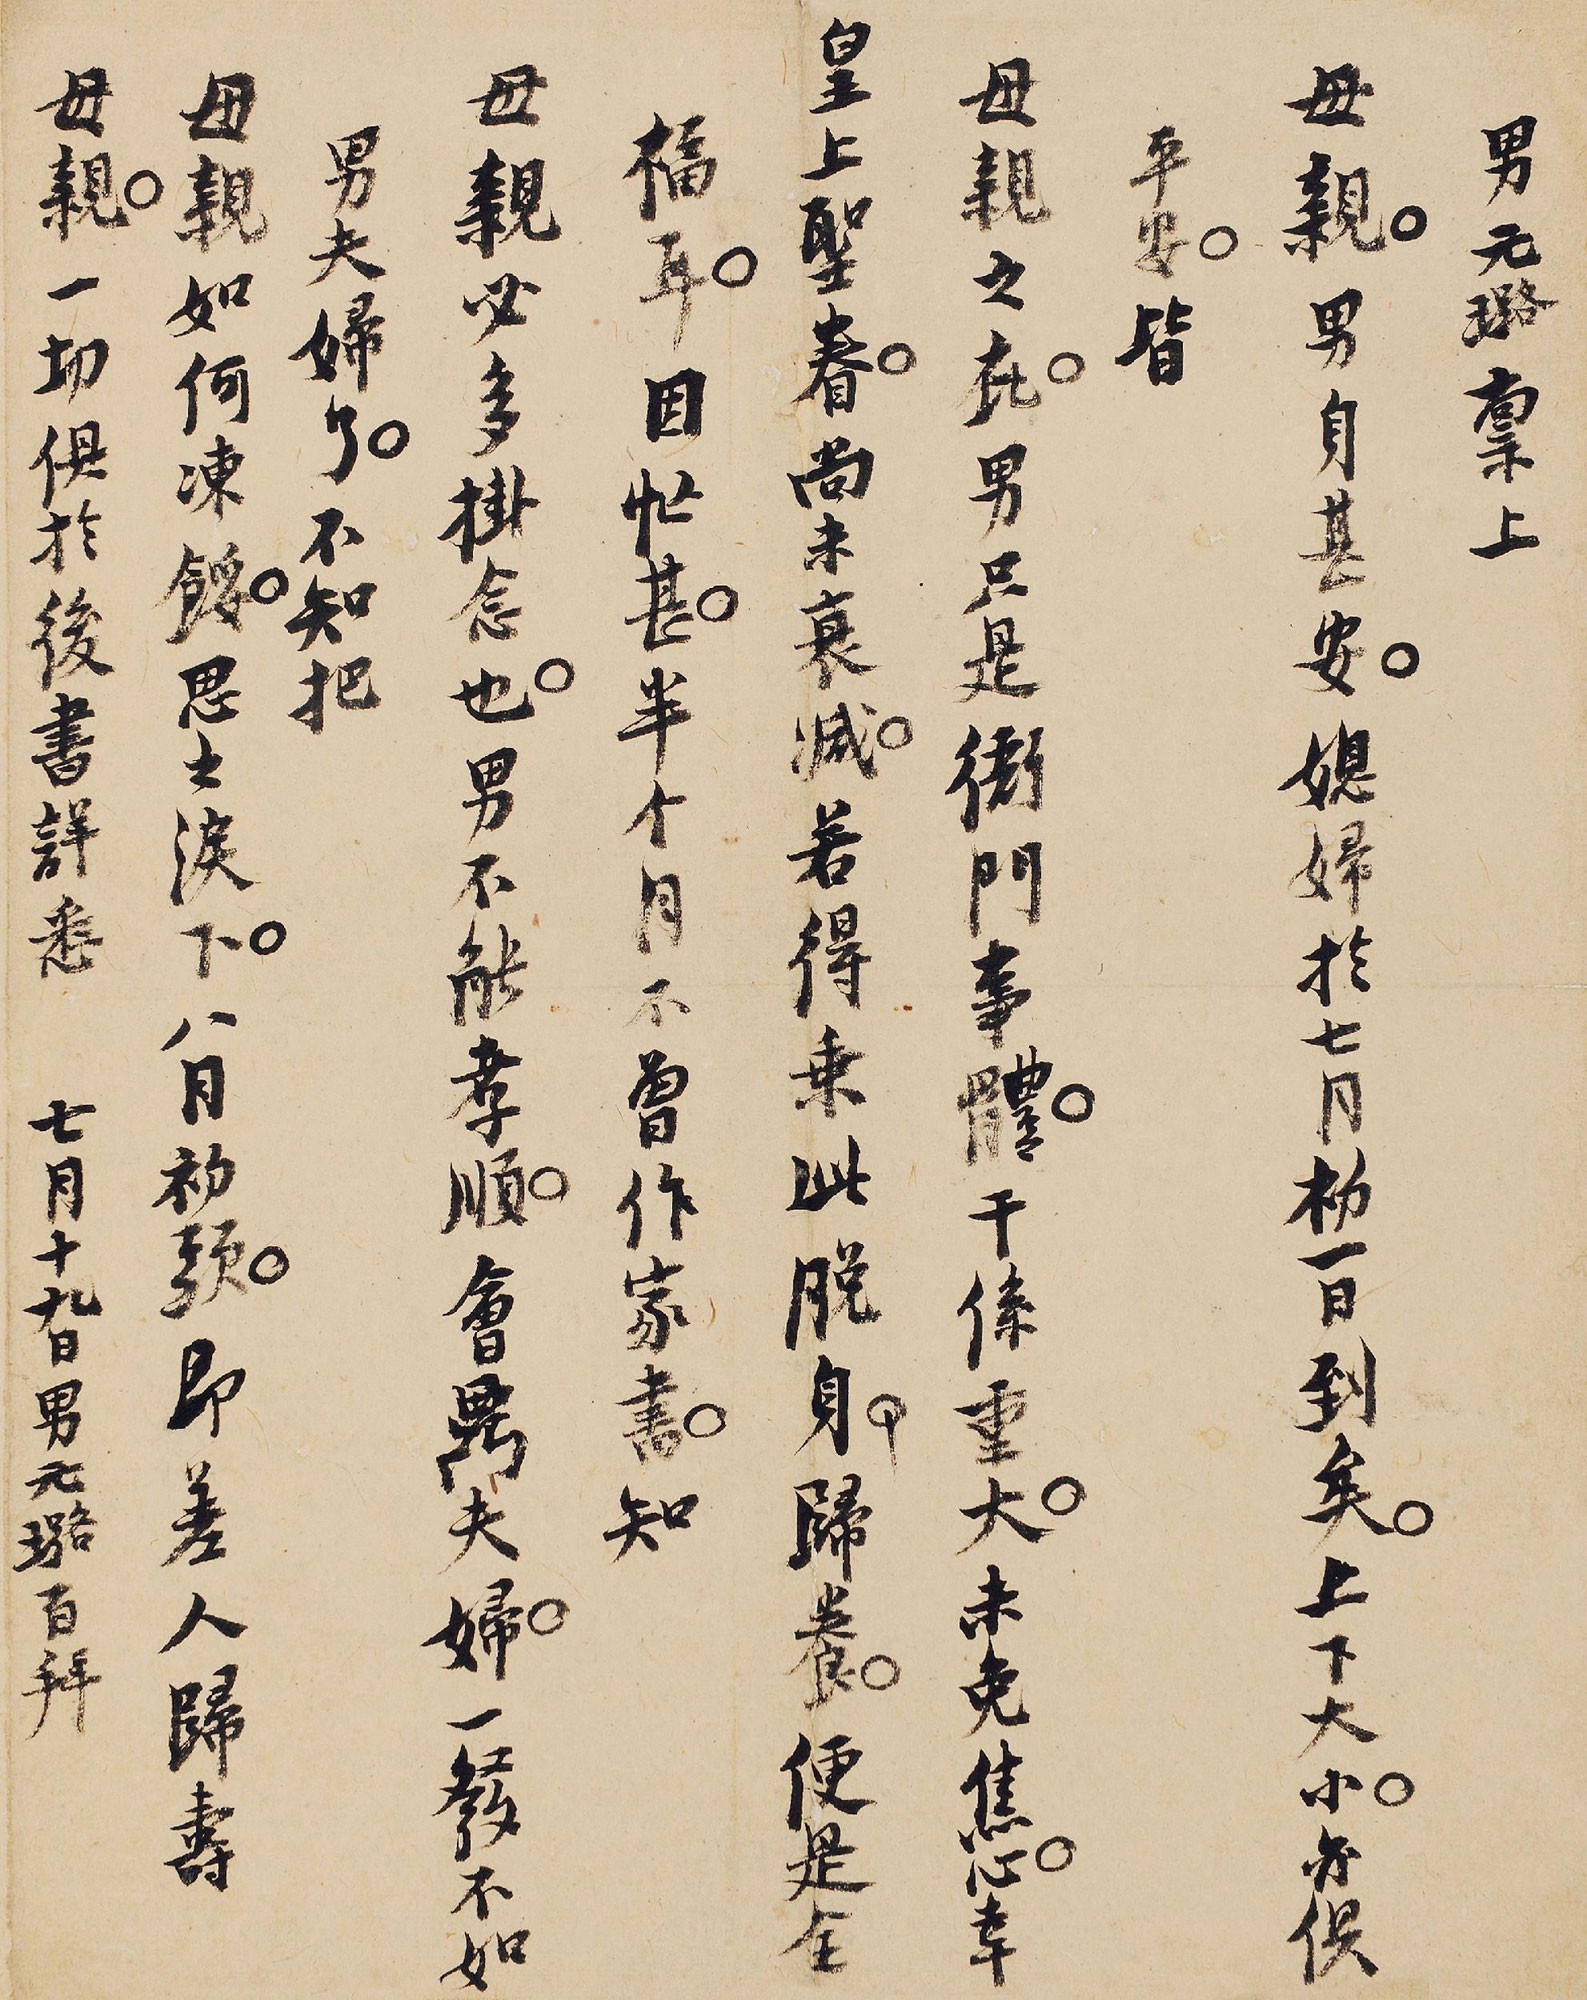 男元璐禀上
母親。男身甚安。媳婦於七月初一日到矣。上下大小。亦俱
平安。皆
母親之庇。男只是衙門事體。干係重大。未免焦心。幸
皇上聖眷。尚未衰減。若得乘此脱身。歸養。便是全
福耳。因忙甚。半个月不曾作家書。知
母親必多掛念也。男不能孝順。會禺夫婦。一發不如
男夫婦了。不知把
母親如何凍餒。思之淚下。八月初頭。即差人歸壽
母親。一切俱於後書詳悉 七月十九日男元璐百拜